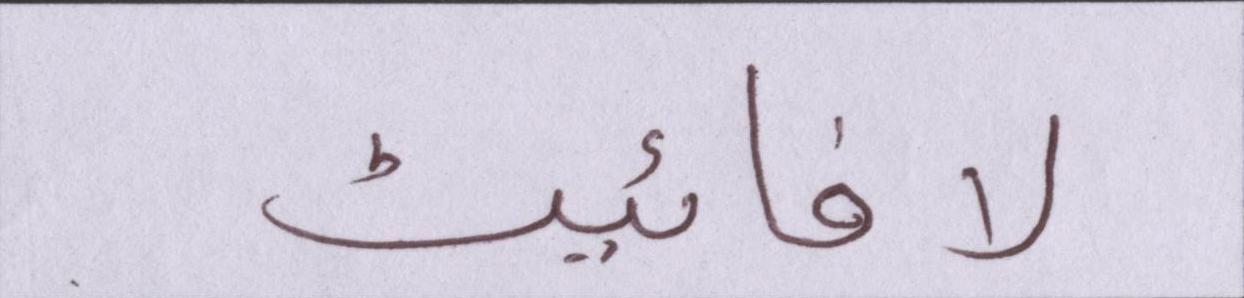 لافائیٹ